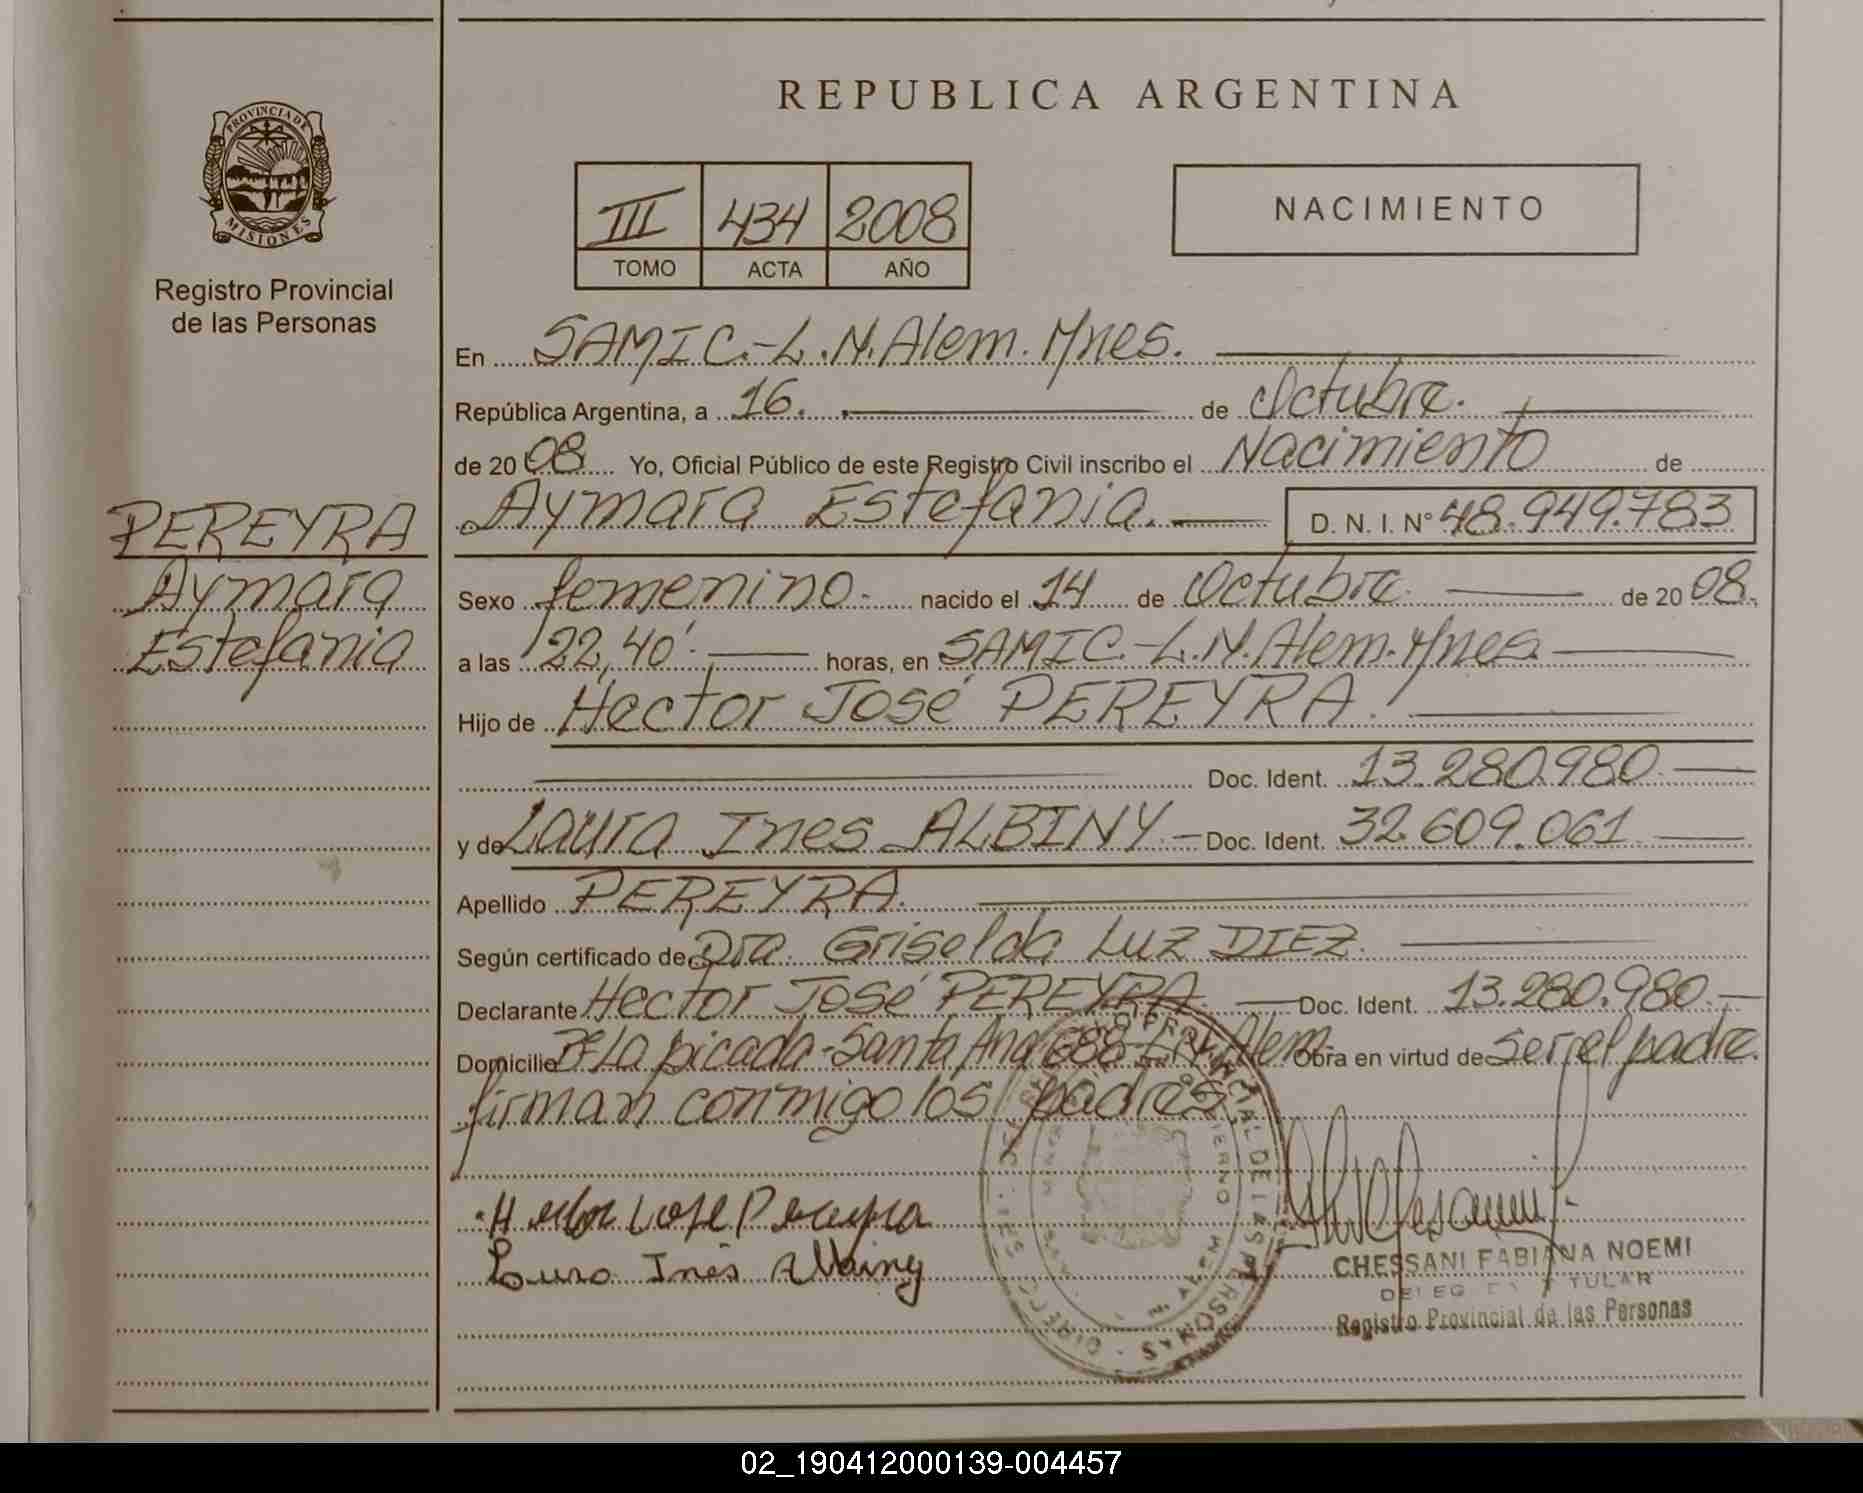 REPUBLICA ARGENTINA
PROVINCIA DE
MISIONES
Registro Provincial
de las Personas
III 434 2008
TOMO ACTA AÑO
NACIMIENTO
PEREYRA
Aymara
Estefania
En SAMIC.-L.N.Alem.Mnes.
República Argentina, a 16. de Octubre.
de 2008 Yo, Oficial Público de este Registro Civil inscribo el Nacimiento de
Aymara Estefania. D. N. I. N° 48.949.783
Sexo femenino. nacido el 14 de Octubre de 2008.
a las 22,40'. horas, en SAMIC.-L.N.Alem.Mnes.
Hijo de Hector José PEREYRA.
Doc. Ident. 13.280.980
y de Laura Ines ALBINY.- Doc. Ident. 32.609.061
Apellido PEREYRA.
Según certificado de Dra. Griselda Luz DIEZ.
Declarante Hector José PEREYRA. Doc. Ident. 13.280.980
Domicilio Bº La picada-Santa Ana 688-L.N.Alem Obra en virtud de ser el padre.
firman conmigo los padres
Hector Jose Pereyra
Laura Inés Albiny
CHESSANI FABIANA NOEMI
TITULAR
Registro Provincial de las Personas
02_190412000139-004457